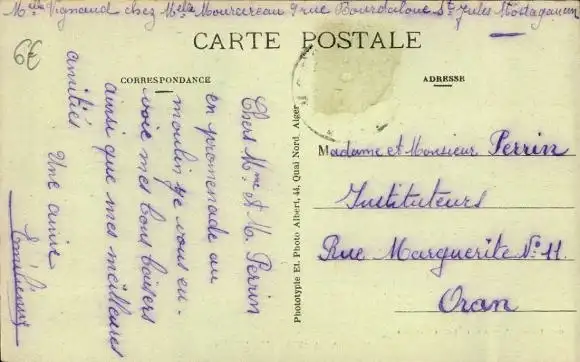 Mlle Vignaud chez Melle Mourereau 9 rue Bourdaloue St Jules Mostaganem
CARTE POSTALE
CORRESPONDANCE
ADRESSE
Chers Mme et M. Perrin
en promenade au
moulin je vous en-
voie mes bons baisers
ainsi que mes meilleures
amitiés Une amie
Phototypie Et. Photo Albert, 44, Quai Nord, Alger
Madame et Monsieur Perrin
Instituteurs
Rue Marguerite No. 11.
Oran